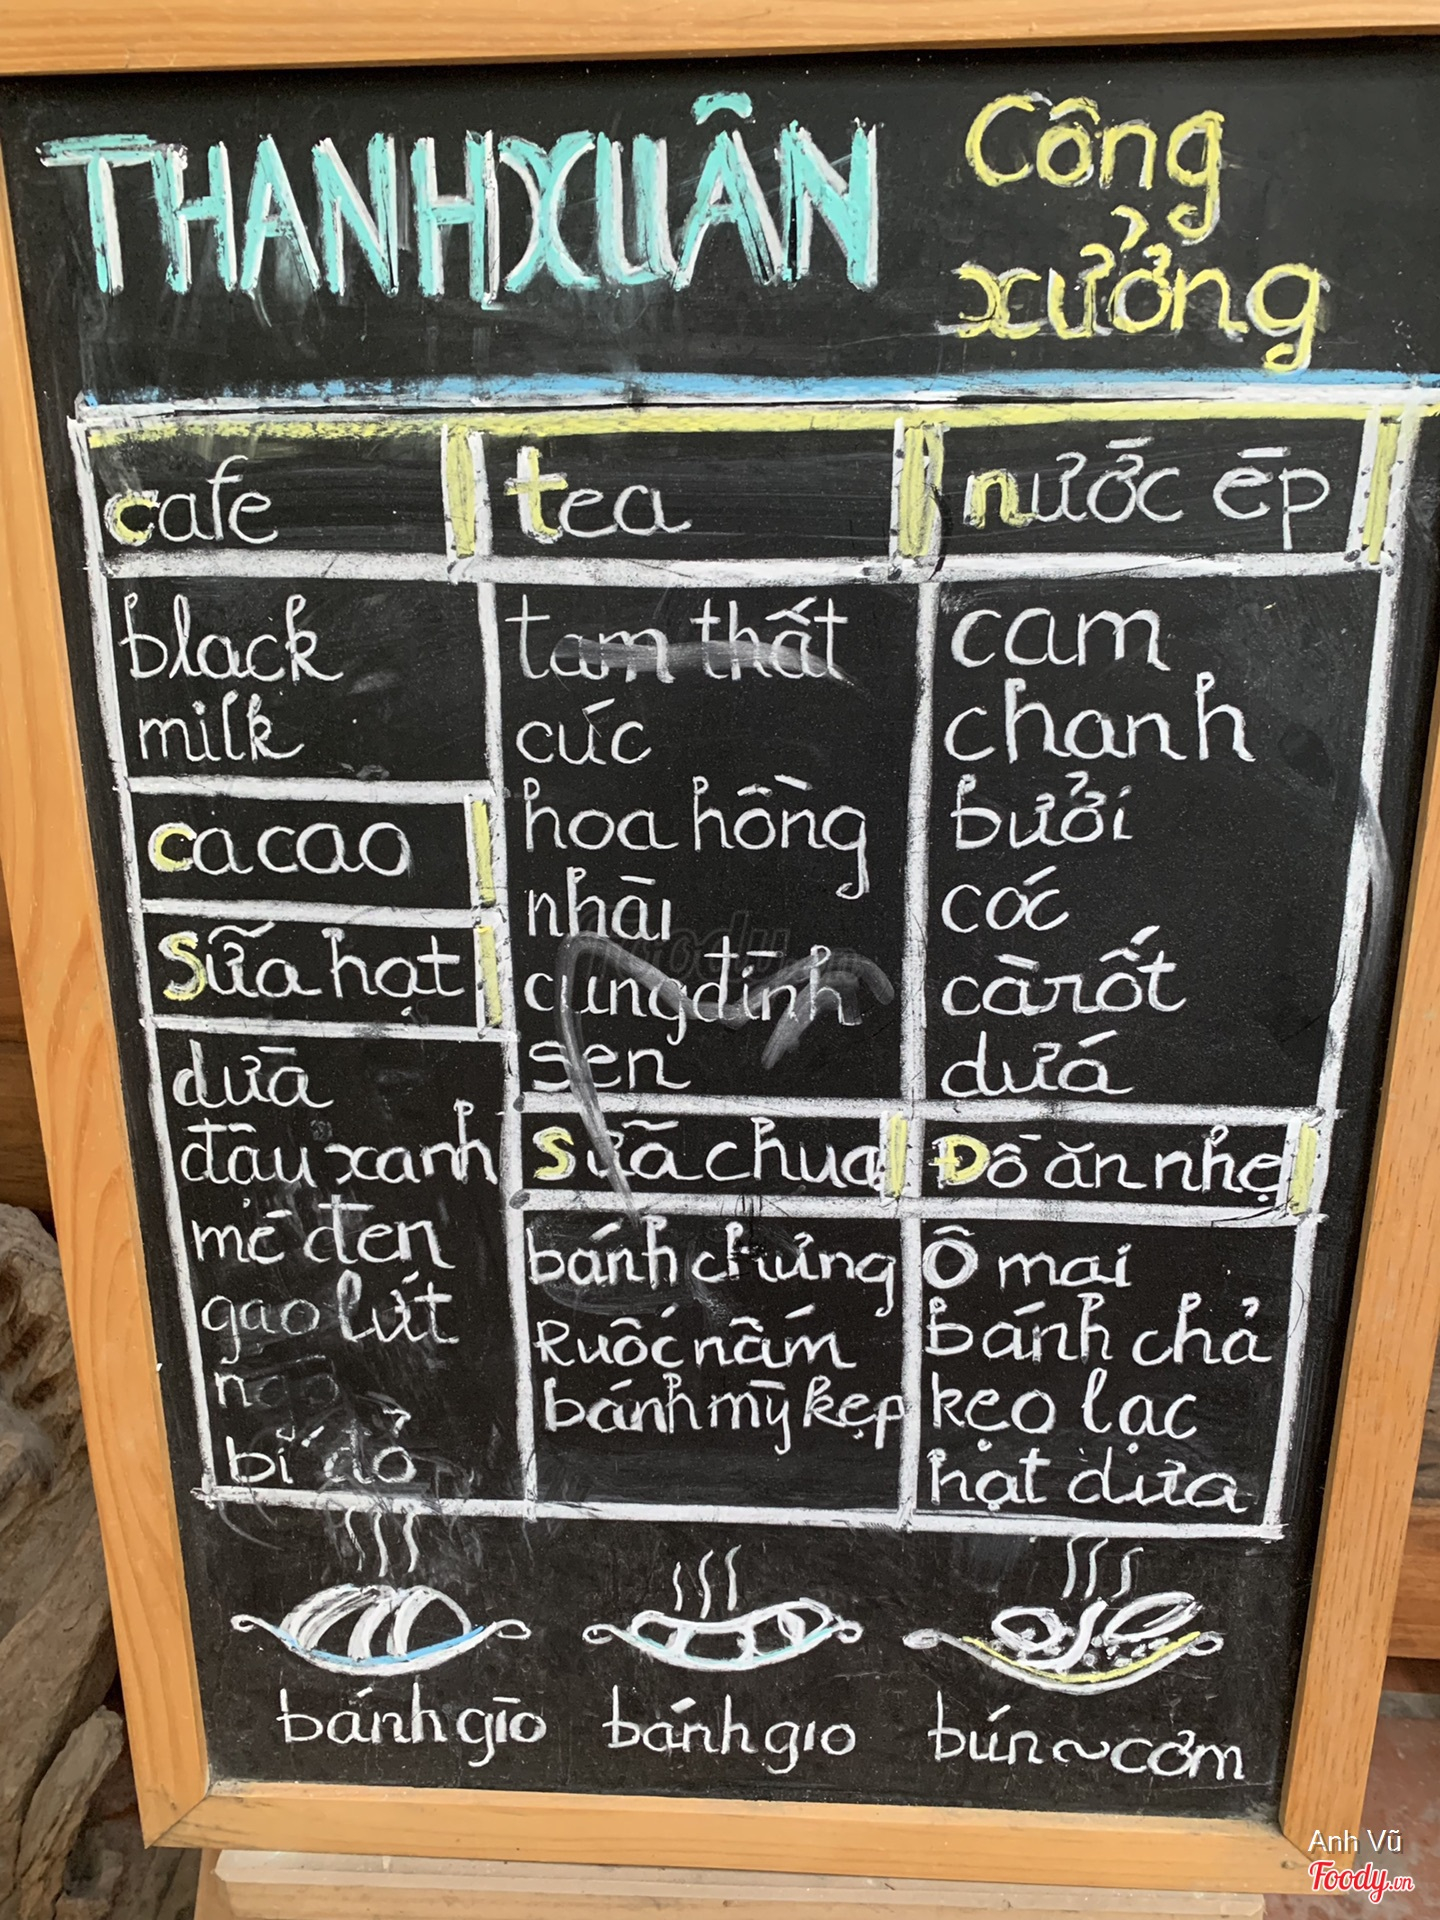 THANHXUÂN
Công
xưởng
cafe
black
milk
cacao
sữa hạt
dừa
đậu xanh
mè đen
gạo lứt
bí đỏ
tea
tam thất
cúc
hoa hồng
nhài
cung đình
sen
sữa chua
bánh chưng
Ruốc nấm
bánh mỳ kẹp
nước ép
cam
chanh
bưởi
cóc
cà rốt
dứa
Đồ ăn nhẹ
Ô mai
bánh chả
kẹo lạc
hạt dưa
bánh giò
bánh gio
bún ~ cơm
Foody.vn
Anh Vũ
Foody.vn